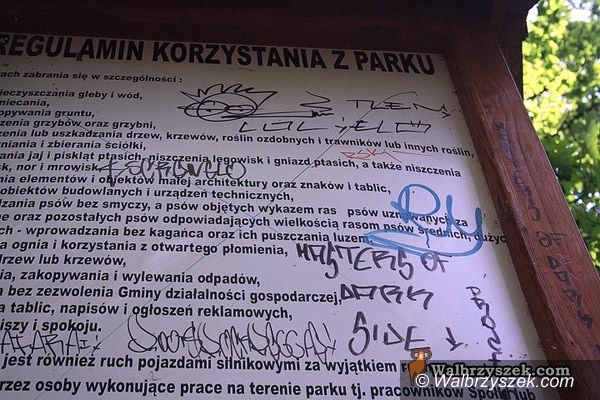 REGULAMIN KORZYSTANIA Z PARKU
ach zabrania się w szczególności :
nieczyszczania gleby i wód,
niecania,
opywania gruntu,
zenia grzybów oraz grzybni,
zenia lub uszkadzania drzew, krzewów, roślin ozdobnych i trawników lub innych roślin,
niania i zbierania ściółki,
ania jaj i piskląt ptasich, niszczenia legowisk i gniazd ptasich, a także niszczenia
sk, nor i mrowisk,
nia elementów i obiektów małej architektury oraz znaków i tablic,
obiektów budowlanych i urządzeń technicznych,
dzania psów bez smyczy, a psów objętych wykazem ras psów uznawanych za
ne oraz pozostałych psów odpowiadających wielkością rasom psów średnich, dużyc
ch - wprowadzania bez kagańca oraz ich puszczania luzem,
a ognia i korzystania z otwartego płomienia,
drzew lub krzewów,
nia, zakopywania i wylewania odpadów,
n bez zezwolenia Gminy działalności gospodarczej,
a tablic, napisów i ogłoszeń reklamowych,
iszy i spokoju.
jest również ruch pojazdami silnikowymi za wyjątkiem
rzez osoby wykonujące prace na terenie parku tj. pracowników
MASTERS OF
DARK
SIDE
MASTERS OF DARK
Walbrzyszek.com
© Walbrzyszek.com